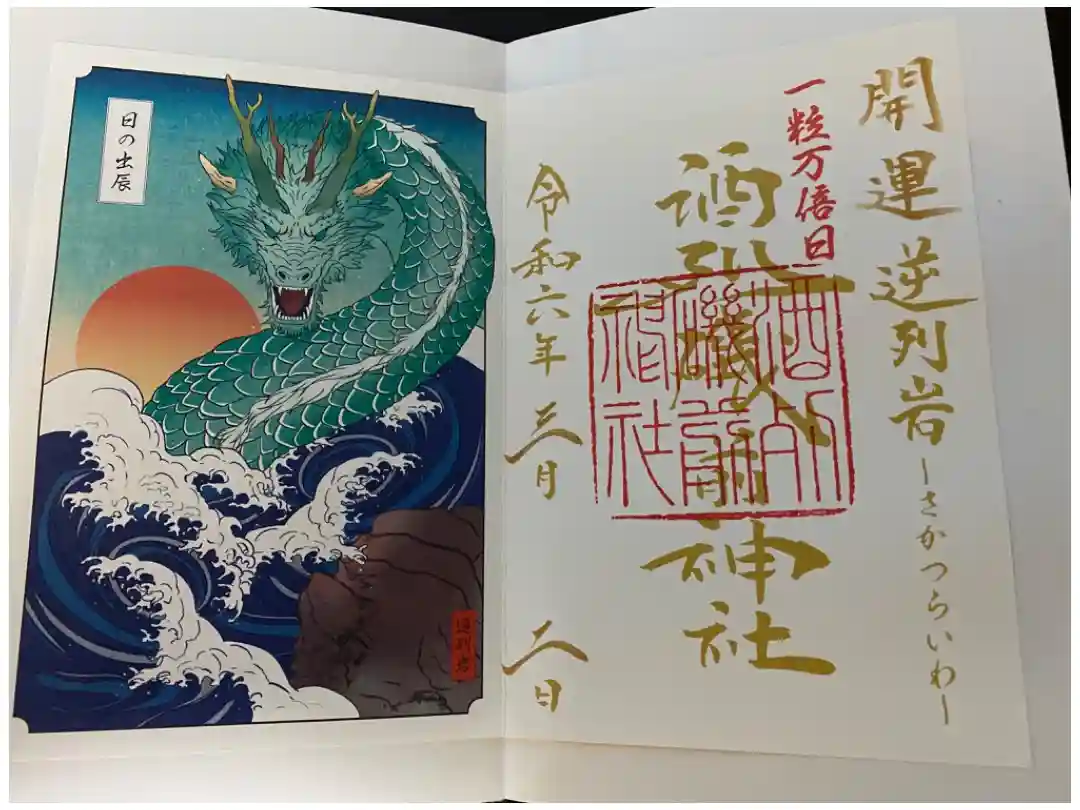 開運逆列岩-さかつらいわ-
一粒万倍日
酒列磯前神社
酒列
磯前
神社
令和六年三月二日
日の出辰
逆列岩